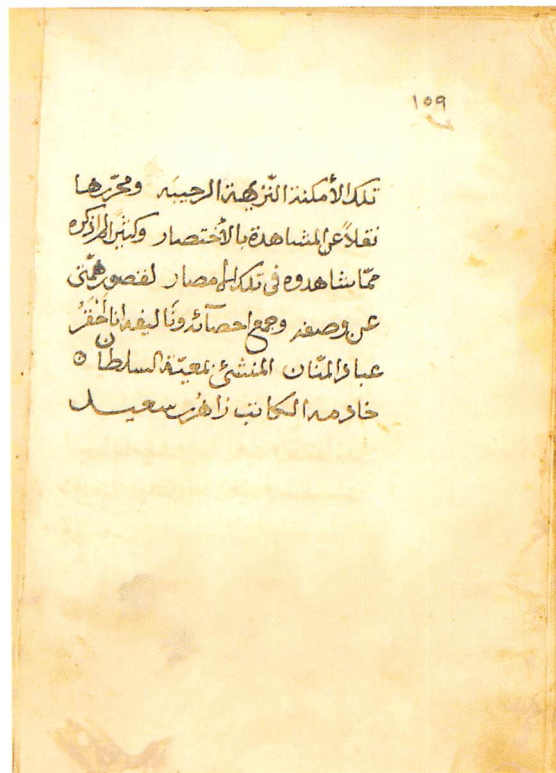 ١٥٩
تلك الأمكنة النّزيهة الرحيبه ومحرّرها
نقلاً عن المشاهدة بالأختصار وكثيرًا لم اذكره
ممّا شاهدوه فى تلك الامصار لقصور همّتى
عن وصفه وجمع احصآئه وتأليفه انا احْقَرُ
عباد المنّان المنشئ بمعيّة السلطان
خادمه الكاتب زاهر بن سعيد